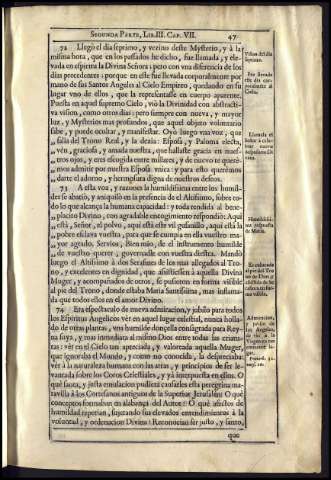 SEGUNDA PARTE, LIB. III. CAP. VII. 47
72 Llegó el dia septimo, y vezino deste Mysterio, y à la
misma hora, que en los passados he dicho, fue llamada, y ele-
vada en espiritu la Divina Señora; pero con vna diferencia de los
dias precedentes; porque en este fue llevada corporalmente por
mano de sus Santos Angeles al Cielo Empireo, quedando en su
lugar vno de ellos, que la representasse en cuerpo aparente.
Puesta en aquel supremo Cielo, viò la Divinidad con abstracti-
va vision, como otros dias; pero siempre con nueva, y mayor
luz, y Mysterios mas profundos, que aquel objeto voluntario
sabe, y puede ocultar, y manifestar. Oyò luego vna voz, que
salia del Trono Real, y la dezia: Esposa, y Paloma electa,
vèn, graciosa, y amada nuestra, que hallaste gracia en nues-
tros ojos, y eres escogida entre millares, y de nuevo te quere-
mos admitir por nuestra Esposa vnica: y para esto queremos
darte el adorno, y hermosura digna de nuestros deseos.
73 A esta voz, y razones la humildissima entre los humil-
des se abatiò, y aniquilò en la presencia de el Altissimo, sobre to-
do lo que alcança la humana capacidad; y toda rendida al bene-
placito Divino, con agradable encogimiento respondiò: Aqui
està, Señor, el polvo, aqui està este vil gusanillo, aqui està la
pobre esclava vuestra, para que se cumpla en ella vuestro ma-
yor agrado. Servios, Bien mio, de el instrumento humilde
de vuestro querer, governadle con vuestra diestra. Mandò
luego el Altissimo à dos Serafines de los mas allegados al Tro-
no, y excedentes en dignidad, que assistiessen à aquella Divina
Muger, y acompañados de otros, se pusieron en forma visible
al pie del Trono, donde estaba Maria Santissima, mas inflama-
da que todos ellos en el amor Divino.
74 Era espectaculo de nueva admiracion, y jubilo para todos
los Espiritus Angelicos ver en aquel lugar celestial, nunca holla-
do de otras plantas, vna humilde donçella consagrada para Rey-
na suya, y mas inmediata al mismo Dios entre todas las criatu-
ras: vèr en el Cielo tan apreciada, y valorada aquella Muger,
que ignoraba el Mundo, y como no conocida, la despreciaba:
vèr à la naturaleza humana con las arras, y principio de ser le-
vantada sobre los Coros Celestiales, y yà interpuesta en ellos. O
què santa, y justa emulacion pudiera causarles esta peregrina ma-
ravilla à los Cortesanos antiguos de la Superior Jerusalèn! O què
conceptos formaban en alabança del Autor! O què afectos de
humildad repetian, sujetando sus elevados entendimientos à la
voluntad, y ordenacion Divina! Reconocian ser justo, y santo,
que
Vision del dia
septimo.
Fue llevada
este dia cor-
poralmente al
Cielo.
Humildissi-
ma respuesta
de Maria.
Admiracion,
y jubilo de
los Angeles,